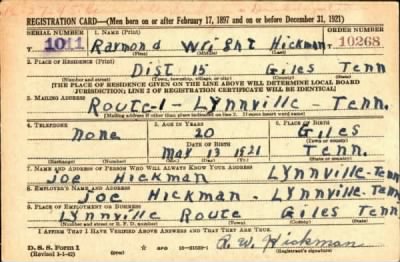 REGISTRATION CARD—(Men born on or after February 17, 1897 and on or before December 31, 1921)
SERIAL NUMBER 1. NAME (Print) ORDER NUMBER
T 1011 Raymond Wright Hickman 10268
(First) (Middle) (Last)
2. PLACE OF RESIDENCE (Print)
Dist. 15 Giles Tenn
(Number and street) (Town, township, village, or city) (County) (State)
[THE PLACE OF RESIDENCE GIVEN ON THE LINE ABOVE WILL DETERMINE LOCAL BOARD
JURISDICTION; LINE 2 OF REGISTRATION CERTIFICATE WILL BE IDENTICAL]
3. MAILING ADDRESS
Route-1- Lynnville - Tenn.
[Mailing address if other than place indicated on line 2. If same insert word same]
4. TELEPHONE 5. AGE IN YEARS 6. PLACE OF BIRTH
None 20 Giles
DATE OF BIRTH (Town or county)
May 13 1921 Tenn.
(Exchange) (Number) (Mo.) (Day) (Yr.) (State or country)
7. NAME AND ADDRESS OF PERSON WHO WILL ALWAYS KNOW YOUR ADDRESS
Joe Hickman Lynnville-Tenn
8. EMPLOYER'S NAME AND ADDRESS
Joe Hickman - Lynnville-Tenn
9. PLACE OF EMPLOYMENT OR BUSINESS
Lynnville Route Giles Tenn
(Number and street or R. F. D. number) (Town) (County) (State)
I AFFIRM THAT I HAVE VERIFIED ABOVE ANSWERS AND THAT THEY ARE TRUE.
D. S. S. Form 1 R. W. Hickman
(Revised 1-1-42) GPO (Registrant's signature)